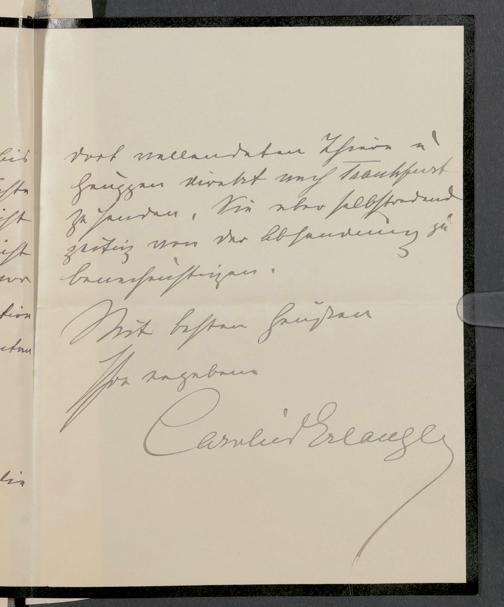 dort vollendeten Thiere u
Gruppen direkt nach Frankfurt
zu senden, Sie aber selbstredend
zeitig von der Absendung zu
benachrichtigen.
Mit besten Grüßen
Ihre ergebene
Erlanger